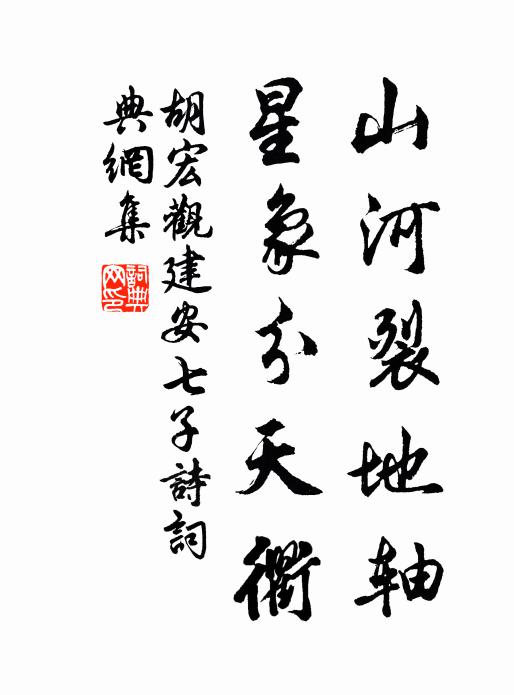 山河裂地轴
星象分天衢
胡宏觀建安七子詩詞
典網集
詞典
网印